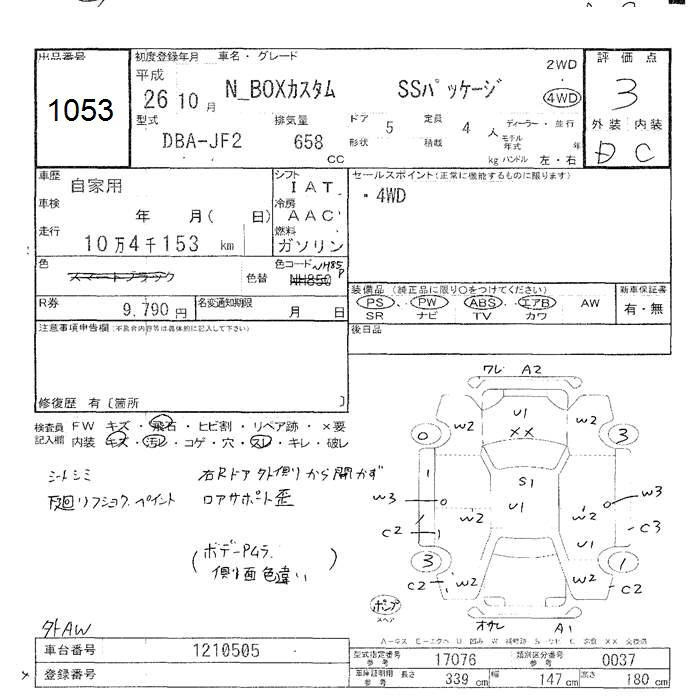 出品番号
1053
初度登録年月 車名・グレード
平成
26 10 月 N_BOXカスタム SSパッケージ
2WD
・
4WD
型式 DBA-JF2
排気量 658 CC
ドア 5 定員 4 人
形状 積載 kg
ディーラー・並行
モデル年式 年
ハンドル 左・右
評価点
3
外装 内装
D C
車歴 自家用
車検 年 月( 日)
走行 10万4千153 km
シフト IAT
冷房 AAC
燃料 ガソリン
セールスポイント(正常に機能するものに限ります)
・4WD
色 スマートブラック 色替
色コード NH85P
NH850
R券 9,790 円
名変通期限 月 日
装備品 (純正品に限り○をつけてください)
PS、PW ABS、エアB AW
SR ナビ TV カワ
新車保証書
有・無
後日品
注意事項申告欄(不具合内容等は具体的に記入して下さい)
修復歴 有〔箇所 〕
検査員記入欄
FW キズ・飛石・ヒビ割・リペア跡・×要
内装 キズ・汚レ・コゲ・穴・スレ・キレ・破レ
シートシミ
右Rドア外側から開かず
ロアサポート歪
(ボデーPムラ.
側面色違い)
外AW
ワレ A2
U1
××
W2 W2
0 3
S1
U1
W3 W3
W2 W2
C2 C3
U1
3 1
C2 W2 W2 C2
ポンプ
スペア
オサレ A1
車台番号 1210505
登録番号
型式指定番号 参考 17076
類別区分番号 参考 0037
車庫証明用 参考 長さ 339 cm 幅 147 cm 高さ 180 cm